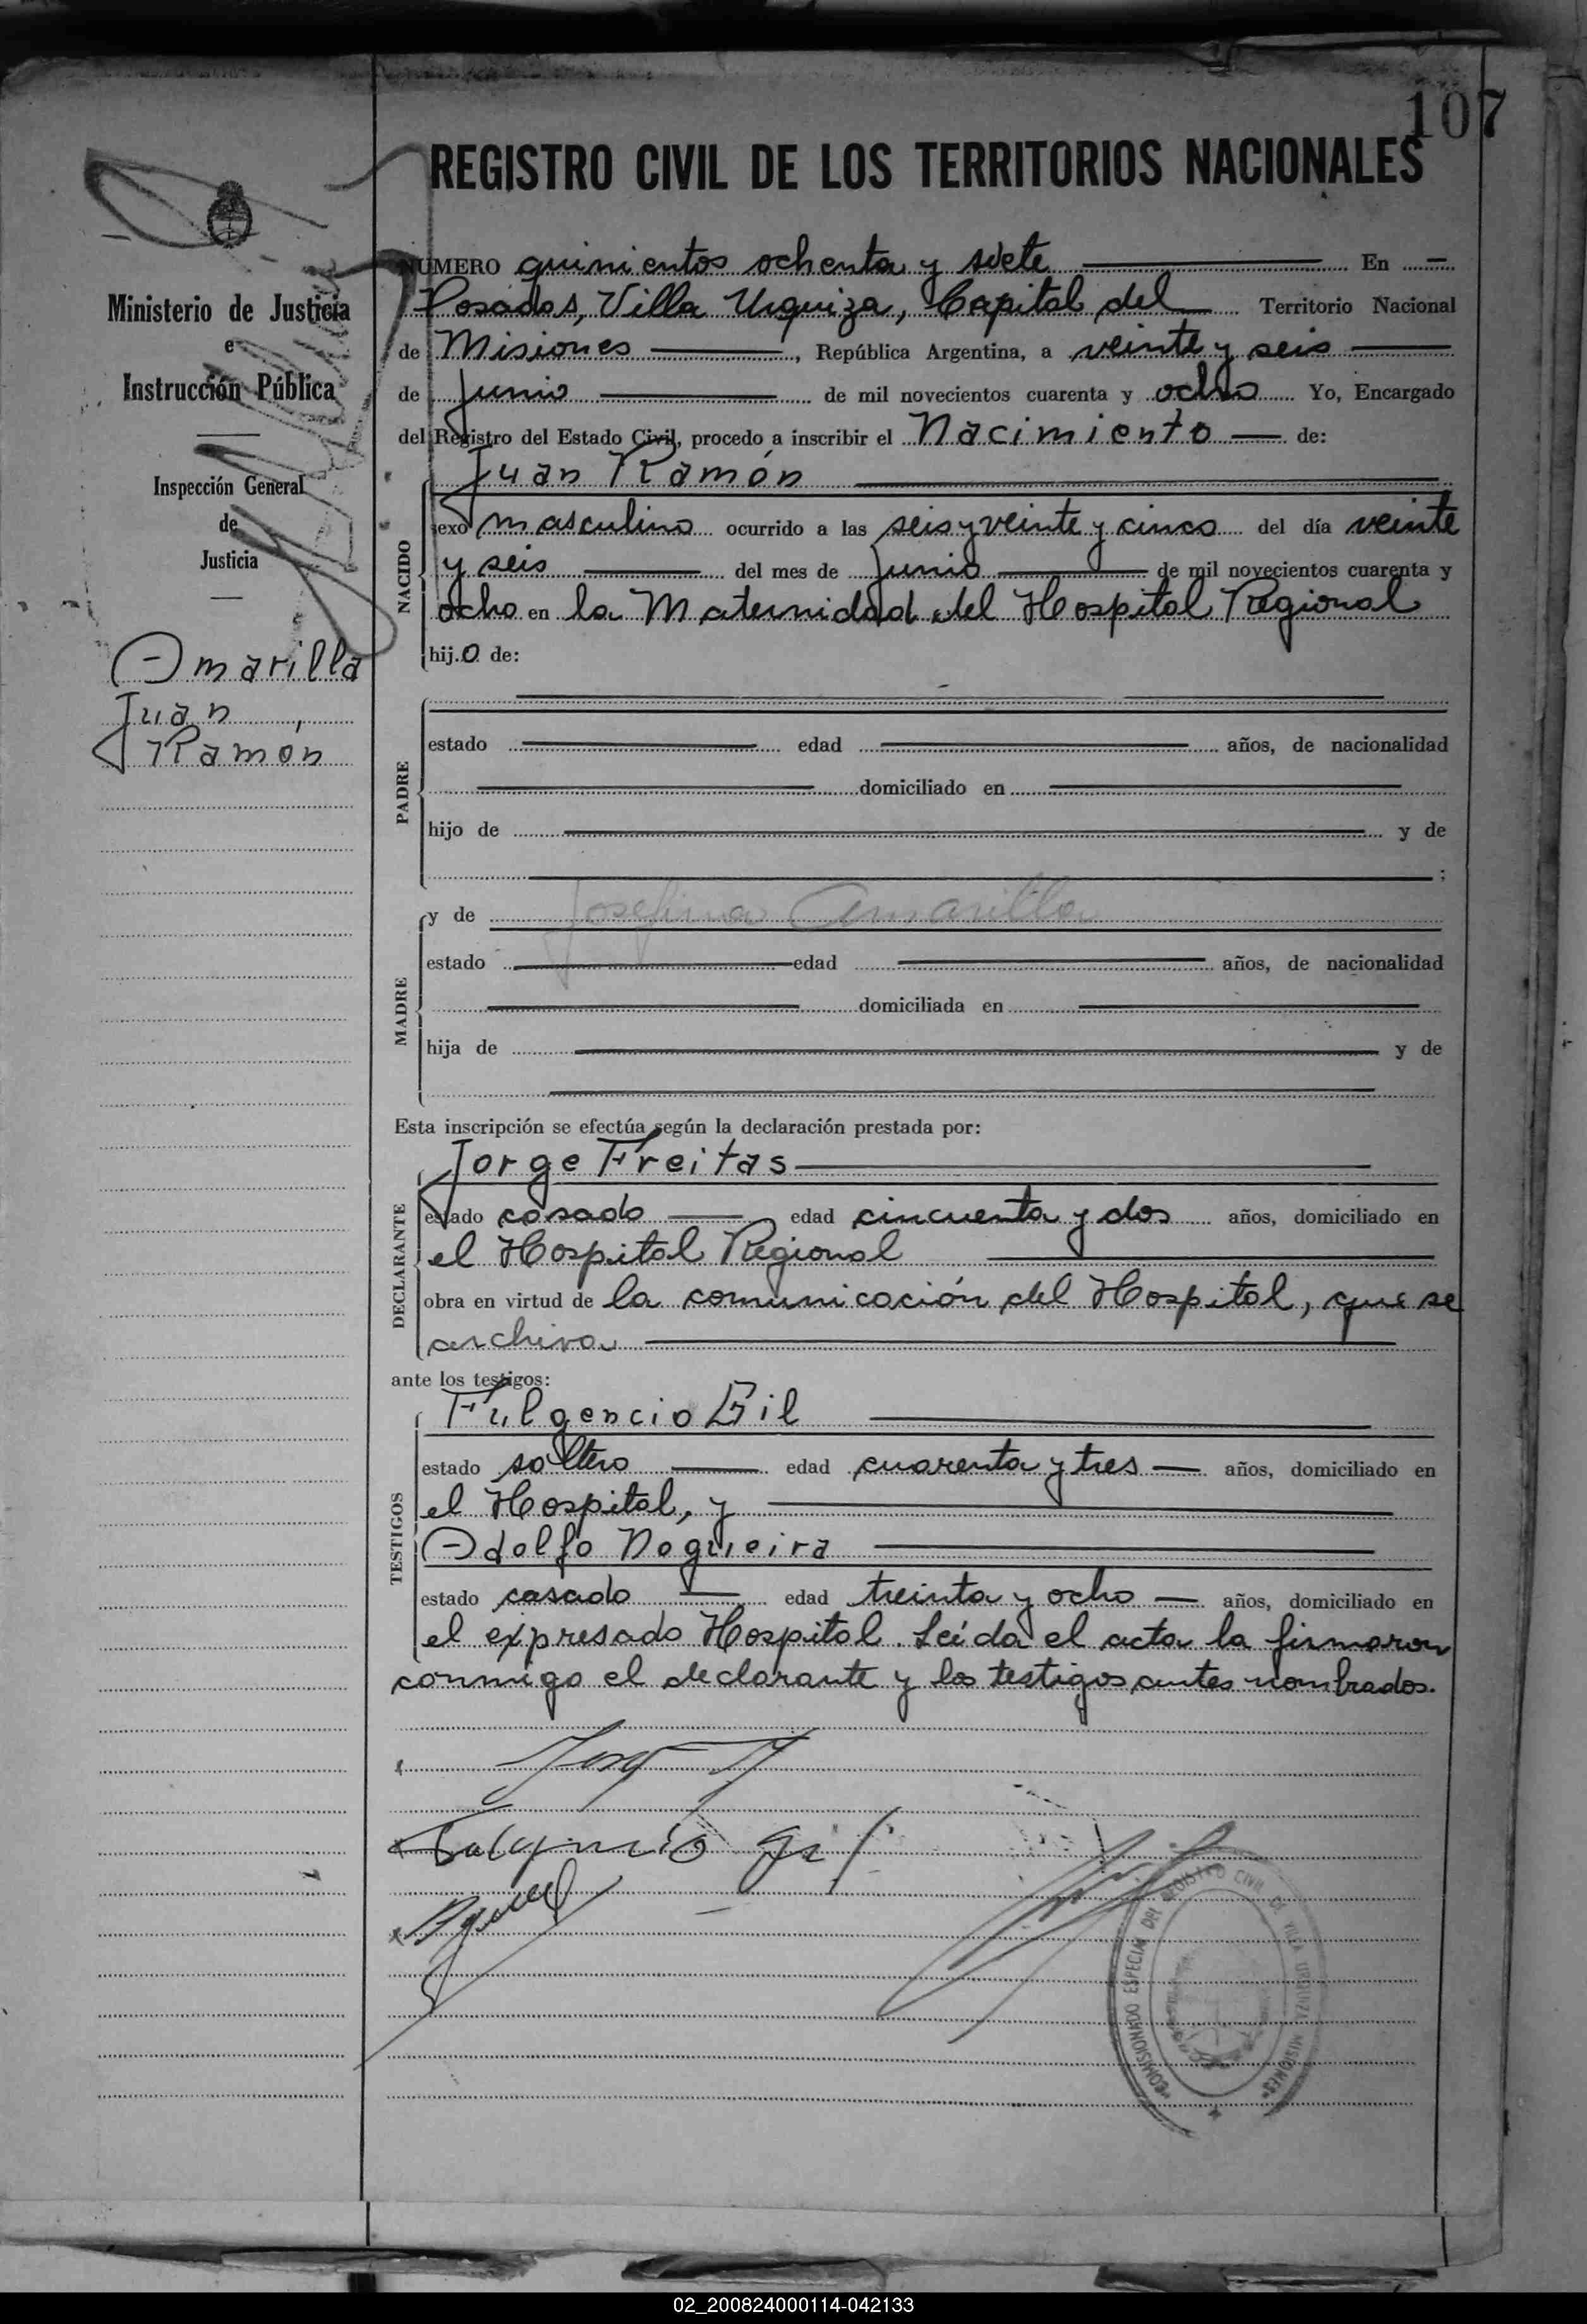 107
REGISTRO CIVIL DE LOS TERRITORIOS NACIONALES
Ministerio de Justicia
e
Instrucción Pública
Inspección General
de
Justicia
Amarilla
Juan,
Ramón
NUMERO quinientos ochenta y siete En
Posadas, Villa Urquiza, Capital del Territorio Nacional
de Misiones, República Argentina, a veinte y seis
de Junio de mil novecientos cuarenta y ocho Yo, Encargado
del Registro del Estado Civil, procedo a inscribir el Nacimiento de:
Juan Ramón
NACIDO
sexo masculino ocurrido a las seis y veinte y cinco del día veinte
y seis del mes de Junio de mil novecientos cuarenta y
ocho en la Maternidad del Hospital Regional
hij.o de:
PADRE
estado edad años, de nacionalidad
domiciliado en
hijo de y de
;
MADRE
y de Josefina Amarilla
estado edad años, de nacionalidad
domiciliada en
hija de y de
Esta inscripción se efectúa según la declaración prestada por:
DECLARANTE
Jorge Freitas
estado casado edad cincuenta y dos años, domiciliado en
el Hospital Regional
obra en virtud de la comunicación del Hospital, que se
archiva
ante los testigos:
TESTIGOS
Fulgencio Gil
estado soltero edad cuarenta y tres años, domiciliado en
el Hospital, y
Adolfo Nogueira
estado casado edad treinta y ocho años, domiciliado en
el expresado Hospital. Leída el acta la firmaron
conmigo el declarante y los testigos antes nombrados.
Fulgencio Gil
COMISIONADO ESPECIAL DEL REGISTRO CIVIL DE VILLA URQUIZA MISIONES
02_200824000114-042133